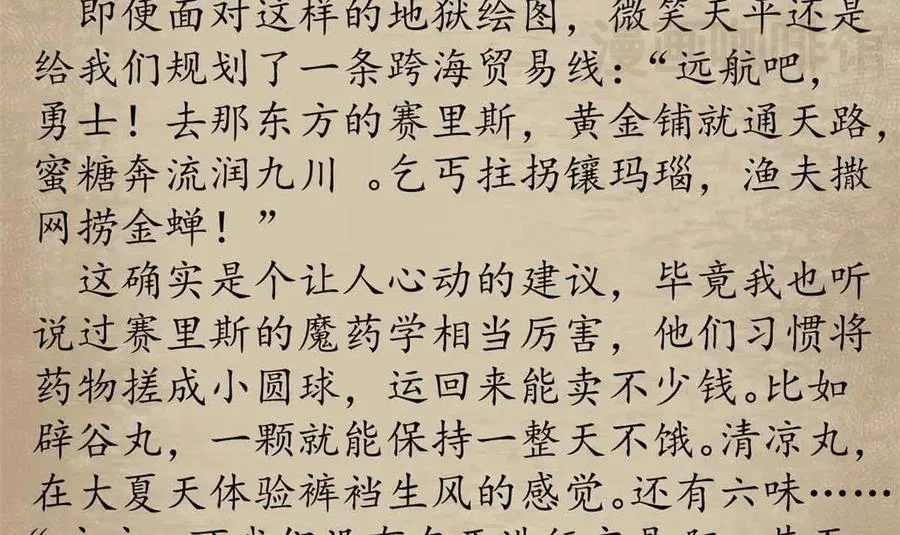 即便面对这样的地狱绘图，微笑天平还是
给我们规划了一条跨海贸易线：“远航吧，
勇士！去那东方的赛里斯，黄金铺就通天路，
蜜糖奔流润九川 。乞丐拄拐镶玛瑙，渔夫撒
网捞金蝉！”
这确实是个让人心动的建议，毕竟我也听
说过赛里斯的魔药学相当厉害，他们习惯将
药物搓成小圆球，运回来能卖不少钱。比如
辟谷丸，一颗就能保持一整天不饿。清凉丸，
在大夏天体验裤裆生风的感觉。还有六味……